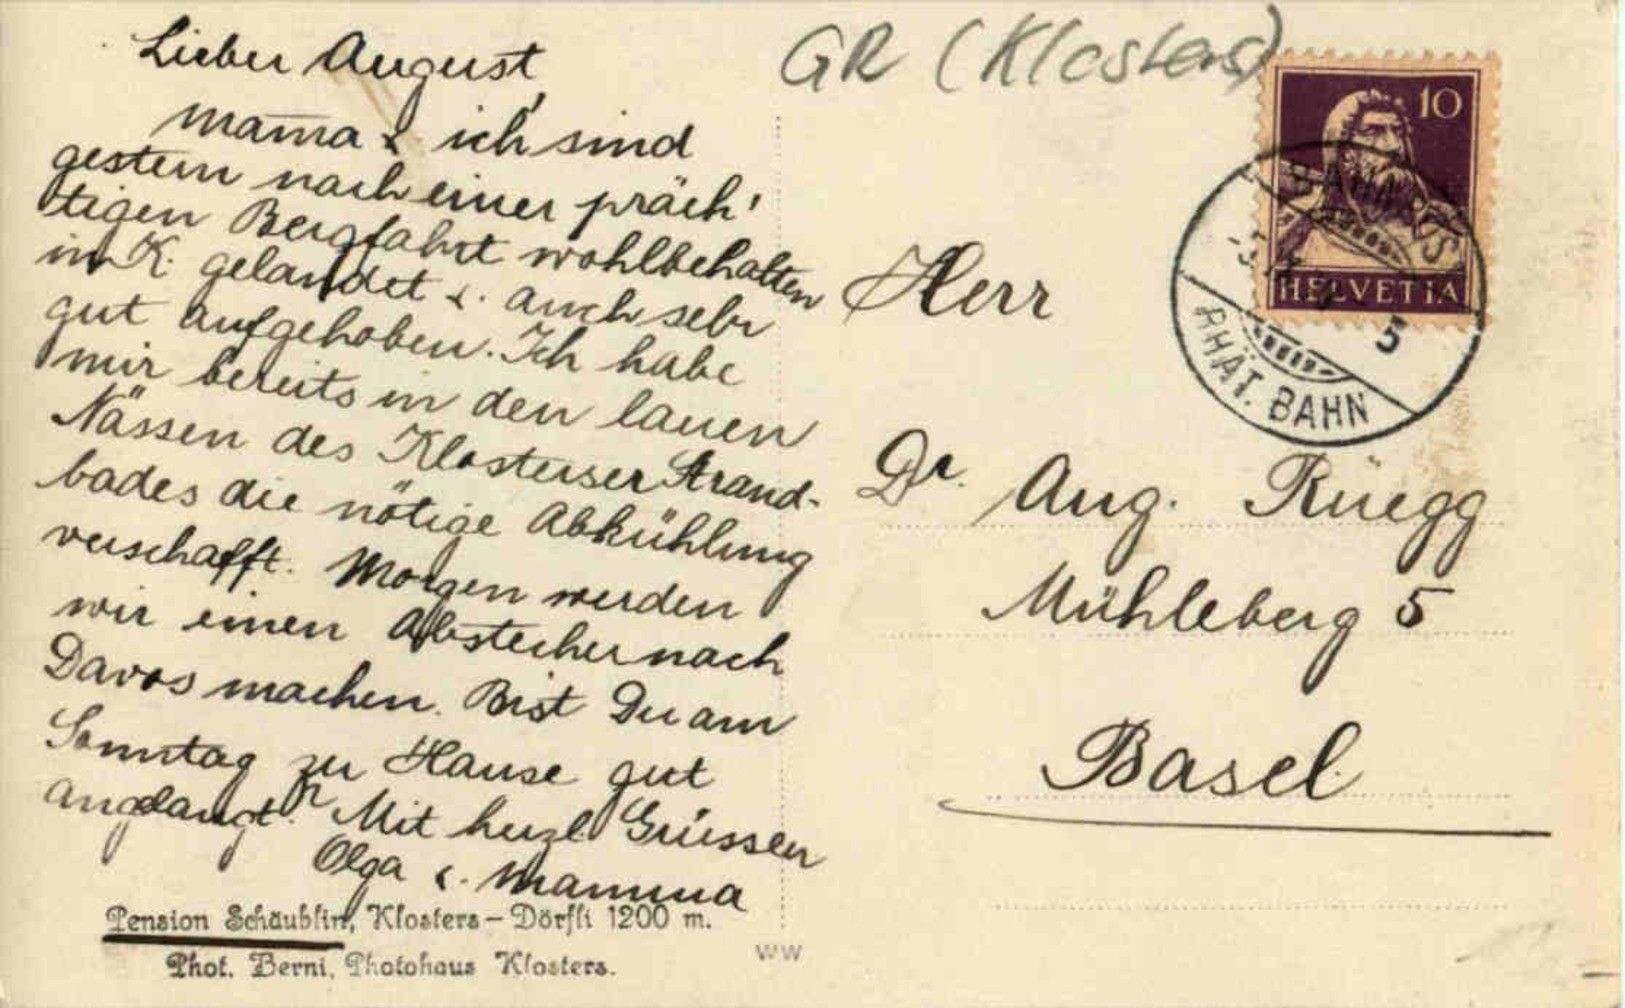 Lieber August,
Mama & ich sind
gestern nach einer präch-
tigen Bergfahrt wohlbehalten
in K. gelandet u. auch sehr
gut aufgehoben. Ich habe
mir bereits in den lauen
Nässen des Klosterser Strand-
bades die nötige Abkühlung
verschafft. Morgen werden
wir einen Abstecher nach
Davos machen. Bist Du am
Sonntag zu Hause gut
angelangt? Mit herzl. Grüssen
Olga u. Mamma
Pension Schäublin, Klosters – Dörfli 1200 m.
Phot. Berni, Photohaus Klosters.
WW
GR (Klosters)
10
HELVETIA
BAHNPOST
5
RHÄT. BAHN
Herr
Dr. Aug. Rüegg
Mühleberg 5
Basel.